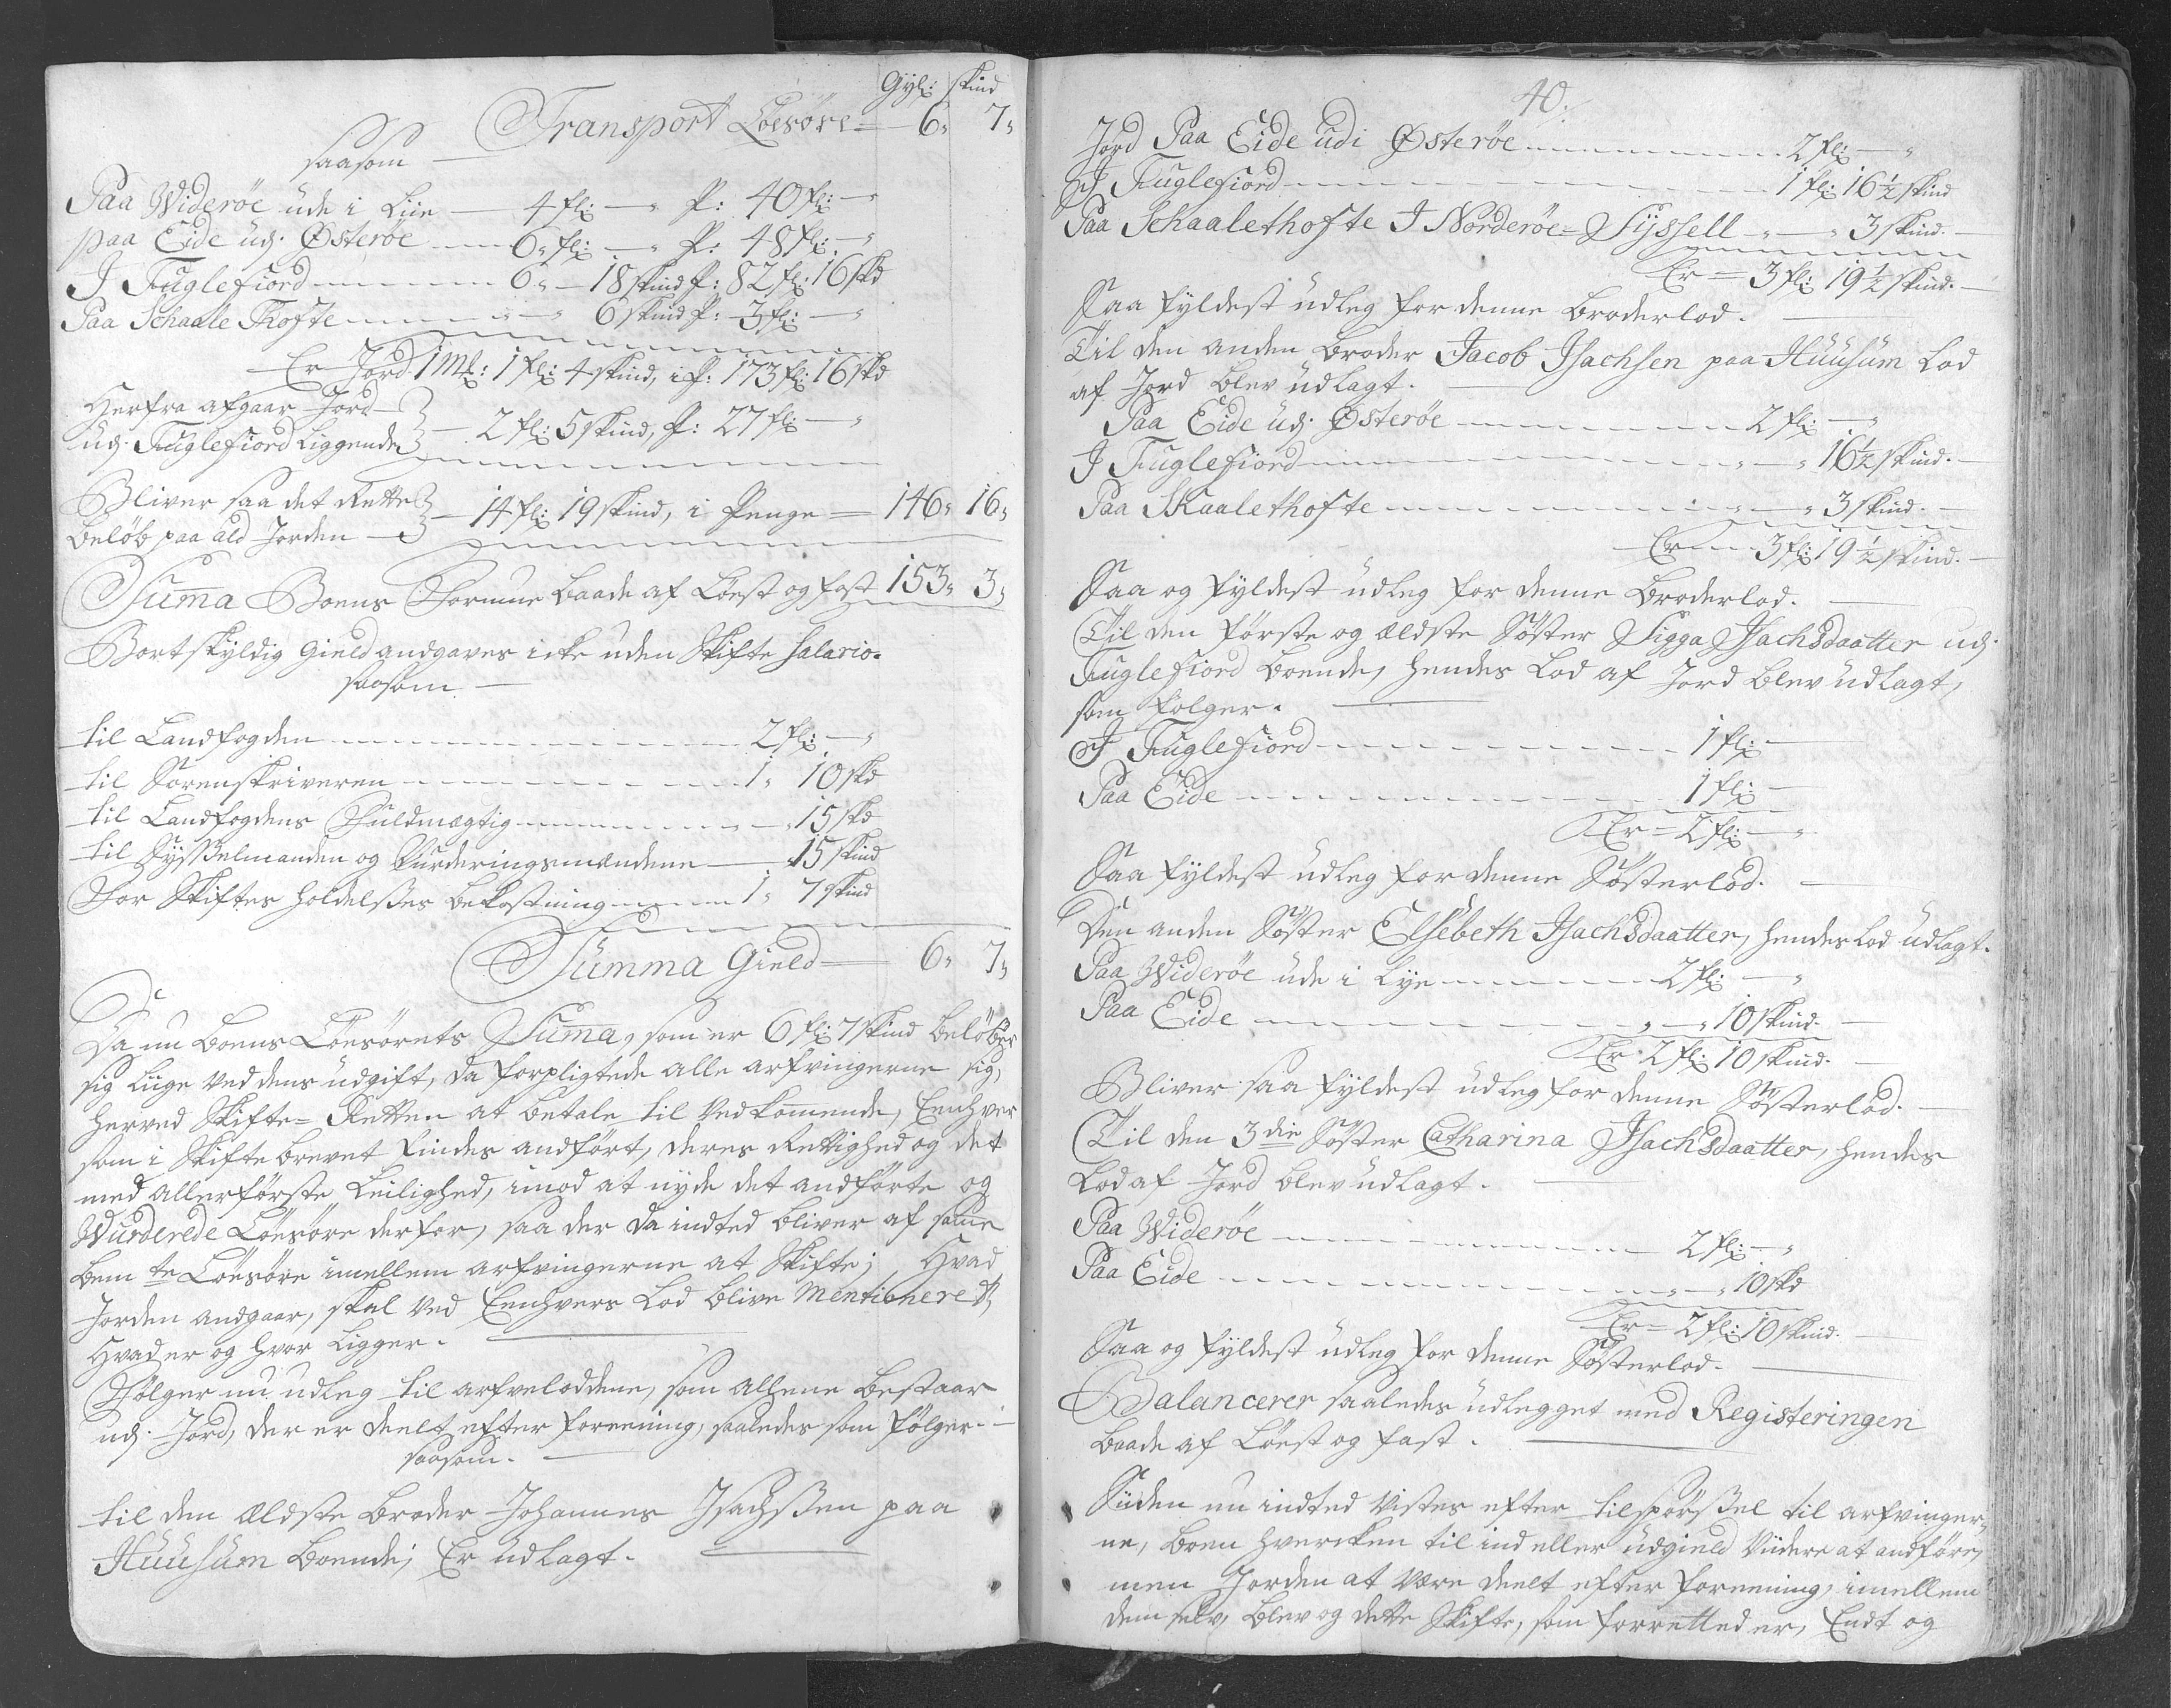 Gyl: skind
Transport Löesöre = 6„ 7„
saasom —
Paa Widerøe ude i Liie — 4 fl: — „ P: 40 fl: — „
paa Eide udj. Østerøe — 6„ fl: — „ P: 48 fl: — „
J Fuglefiord — 6„ — 18 skind P: 82 fl: 16 skd
Paa Schaale Thofte — „ — „ 6 skind P: 3 fl: — „
Er Jord 1 Mk: 1 fl: 4 skind, i P: 173 fl: 16 skd
Herfra afgaar Jord
udj. Fuglefiord Liggende — 2 fl: 5 skind, P: 27 fl: — „
Bliver saa det Rette
beløb paa ald Jorden — 14 fl: 19 skind, i Penge = 146„ 16„
Suma Boens Formue baade af Löest og fast 153„ 3„
Bortskyldig Gield andgaves icke uden Skifte Salario.
saasom. —
til Landfogden — 2 fl: — „
til Sorenskriveren — 1„ 10 skd
til Landfogdens Fuldmægtig — „ — „ 15 skd
til Sysselmanden og Vurderingsmændene — 15 skind
For Skiftes holdelsses bekostning — 1„ 7 skind
Summa Gield — 6„ 7„
Da nu boens Löesörets Suma, som er 6 fl: 7 skind beløber
sig liige ved dens udgift, da forpligtede alle arfvingerne sig,
herved Skifte=Retten at betale til Vedkomende, Eenhver
som i Skifte brevet findes andført, deres Rettighed og det
med allerförste Leilighed, imod at nyde det andførte og
Wurderede Löesöre derfor, saa der da indted bliver af same
bem te Löesöre imellem arfvingerne at Skifte; Hvad
Jorden andgaar, skal ved Eenhvers Lod blive Mentioneret,
hvad er og hvor Ligger. —
Følger nu udleg til arfveloddene, som alleene bestaar
udj. Jord, der er deelt efter foreening, saaledes som følger. —
saasom. —
til den ældste broder Johannes Jsachssen paa
Huusum boende; Er udlagt. —
40.
Jord Paa Eide udi Østerøe — 2 fl: — „
J Fuglefiord — 1 fl: 16 ½ skind
Paa Schaalethofte J Norderøe=Syssell „ — „ 3 skind. —
Er = 3 fl: 19 ½ skind. —
Saa fyldest udleg for denne broderlod. —
Til den anden broder Jacob Jsachsen paa Huusum Lod
af Jord blev udlagt. —
Paa Eide udj. Østerøe — 2 fl: — „
J Fuglefiord — „ — „ 16 ½ skind. —
Paa Skaalethofte — „ — „ 3 skind. —
Er — 3 fl: 19 ½ skind. —
Saa og fyldest udleg for denne broderlod. —
Til den förste og ældste Söster Sigga Jsachsdaatter udj.
Fuglefiord boende, hendes Lod af Jord blev udlagt,
som følger. —
J Fuglefiord — 1 fl: —
Paa Eide — 1 fl: —
Er = 2 fl: — „
Saa fyldest udleg for denne Søsterlod. —
Den anden Söster Elsebeth Jsachsdaatter, hendes Lod udlagt.
Paa Widerøe ude i Lye — 2 fl: — „
Paa Eide — „ — „ 10 skind. —
Er 2 fl: 10 skind. —
Bliver saa fyldest udleg for denne Søsterlod. —
Til den 3die Söster Catharina Jsachsdaatter, hendes
Lod af Jord blev udlagt. —
Paa Widerøe — 2 fl: — „
Paa Eide — „ — „ 10 skd
Er = 2 fl: 10 skind. —
Saa og fyldest udleg for denne Søsterlod. —
Balancerer saaledes udlegget med Registeringen
baade af Löest og fast. —
Siiden nu indted vistes efter tilspørssel til arfvinger=
ne, boen hvercken til ind eller udgield Viidere at andføre,
men Jorden at være deelt efter foreening, imellem
dem selv, blev og dette Skifte, som forretted er, Endt og